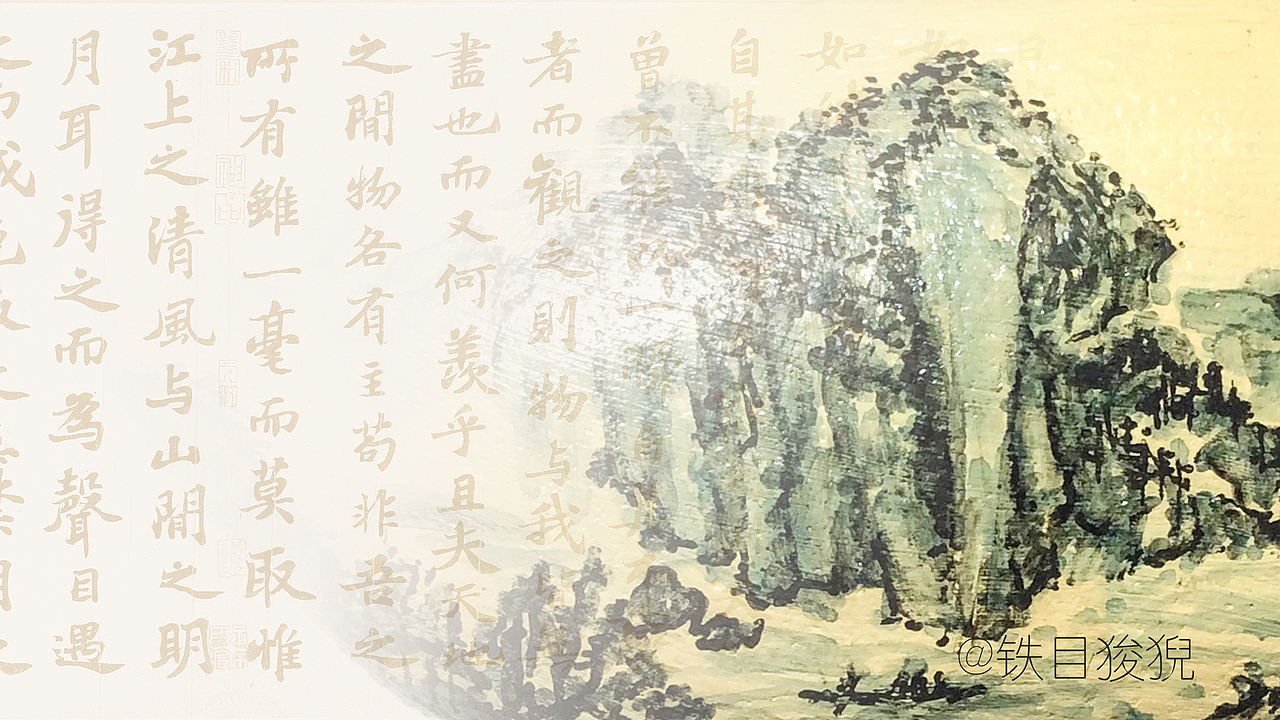 如
自其
曾不能以一瞬自
者而觀之則物与我
盡也而又何羨乎且夫天地
之閒物各有主苟非吾之
所有雖一毫而莫取惟
江上之清風与山閒之明
月耳得之而為聲目遇
@铁目狻猊